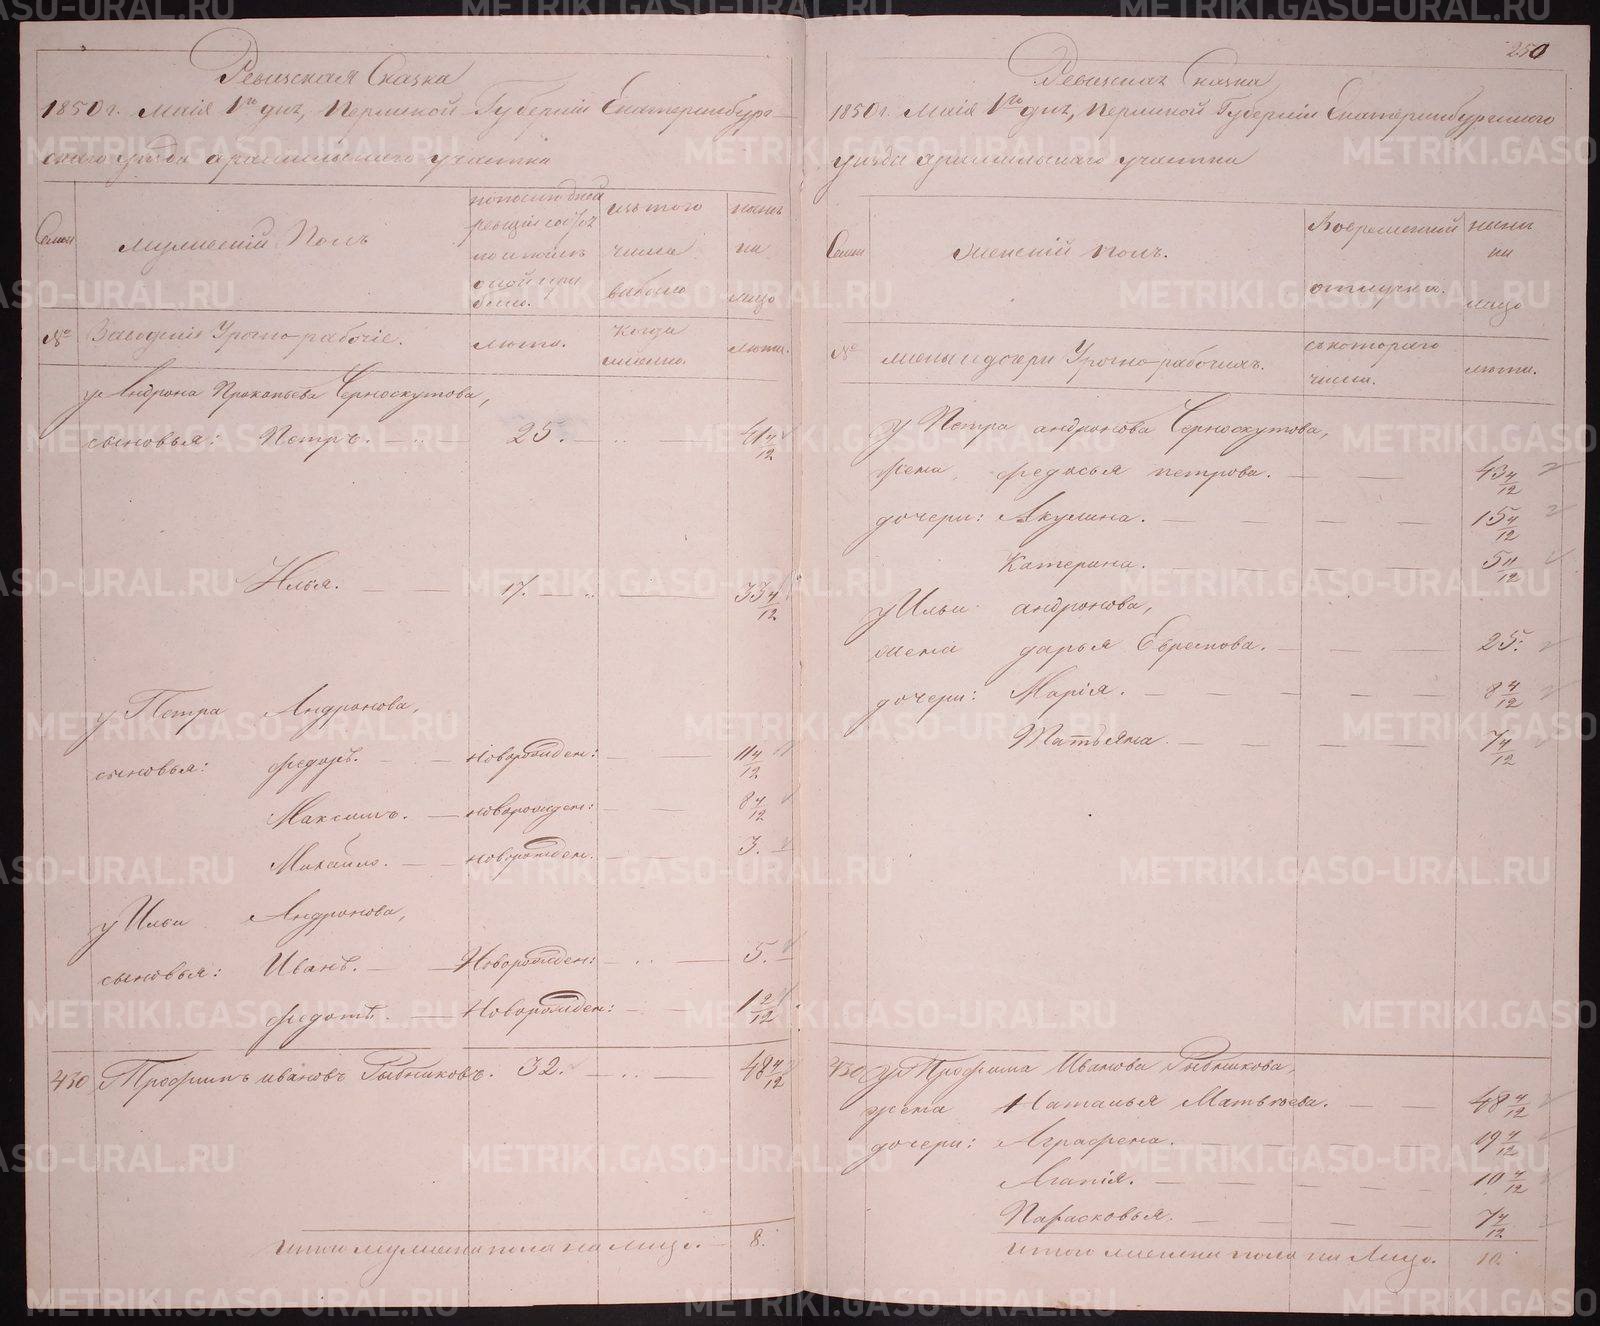 250
Ревизская Сказка
1850 г. Маія 1го дня, Пермской Губерніи Екатеринбург-
скаго уезда арамильскаго участка
Семьи
Мужескій Полъ
по последней
ревизіи состоя
ло и после
оной при
было.
изъ того
числа
выбыло
ныне
на
лицо
№
Заводскіе Урочно-рабочіе.
лета.
когда
именно.
лета.
у Андрона Прокопьева Черноскутова,
сыновья: Петръ. 25. 41 4/12
Илья. 17. 33 4/12
у Петра Андронова,
сыновья: Федоръ. Новорожден: 11 4/12
Максимъ. новорожден: 8 4/12
Михайло. новорожден. 3.
у Ильи Андронова,
сыновья: Иванъ. Новорожден: 5.
Федотъ. Новорожден: 1 2/12
450 Трофимъ ивановъ Рыбниковъ. 32. 48 4/12
Итого мужеска пола на лицо. 8.
Ревизская Сказка
1850 г. Маія 1го дня, Пермской Губерніи Екатеринбургскаго
уезда арамильскаго участка
Семьи
Женскій полъ.
Во временной
отлучке.
ныне
на
лицо
№
жены и дочери Урочно-рабочихъ.
съ котораго
числа.
лета.
у Петра андронова Черноскутова,
жена федосья петрова. 43 4/12
дочери: Акулина. 15 4/12
Катерина. 5 11/12
у Ильи андронова,
жена дарья Ефремова. 25.
дочери: Марія. 8 4/12
Татьяна. 7 4/12
450 у Трофима Иванова Рыбникова,
жена Наталья Матвеева. 48 4/12
дочери: Аграфена. 19 4/12
Агапія. 10 4/12
Парасковья. 7 4/12
Итого женска пола на Лицо. 10.
METRIKI.GASO-URAL.RU